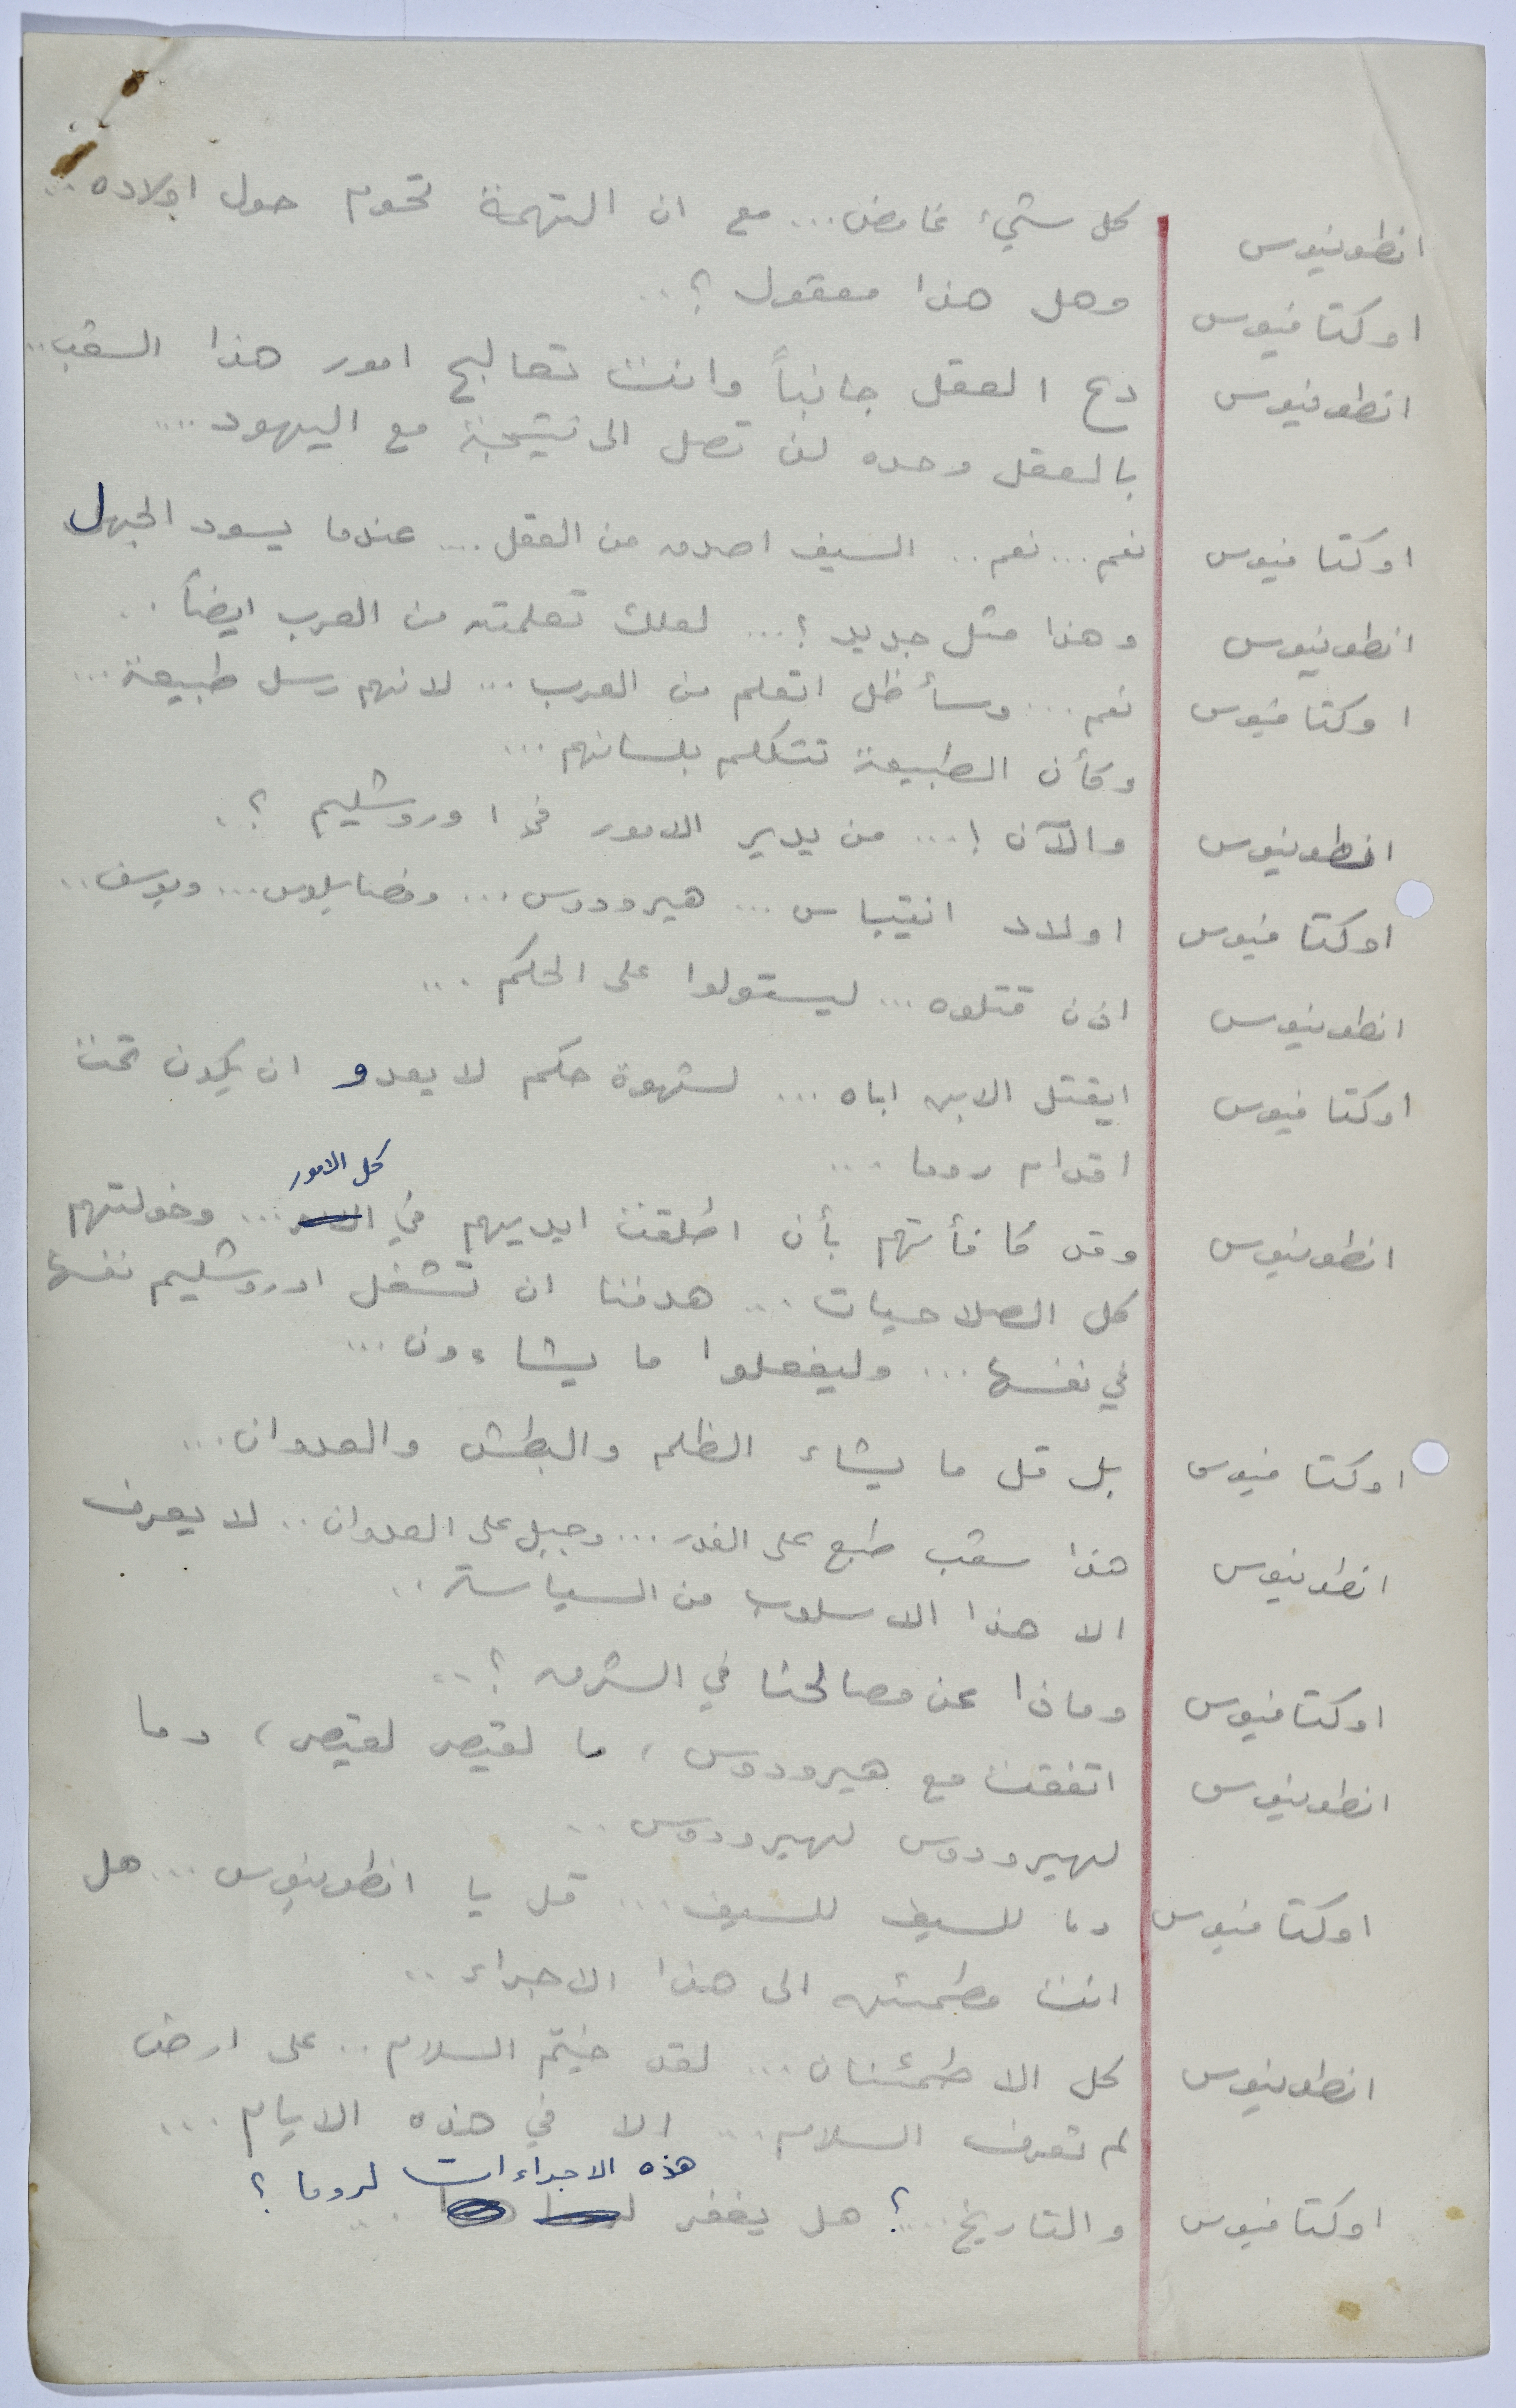 انطونيوس كل شيء غامض... مع ان التهمة تحوم حول اولاده..
اوكتافيوس وهل هذا معقول ؟..
انطونيوس دع العقل جانباً وانت تعالج امور هذا الشعب..
بالعقل وحده لن تصل الى نتيجة مع اليهود....
اوكتافيوس نعم... نعم.. السيف اصدق من العقل.... عندما يسود الجهل
انطونيوس وهذا مثل جديد ؟... لعلك تعلمته من العرب ايضاً..
اوكتافيوس نعم... وسأظل اتعلم من العرب... لانهم رسل طبيعة...
وكأن الطبيعة تتكلم بلسانهم...
انطونيوس والآن !... من يدير الامور في اوروشليم ؟.
اوكتافيوس اولاد انتيباس... هيرودوس... وفصايلوس... ويوسف..
انطونيوس اذن قتلوه... ليستولوا على الحكم...
اوكتافيوس ايقتل الابن اباه... لشهوة حكم لا يعدو ان يكون تحت
اقدام روما...
انطونيوس وقد كافأتهم بأن اطلقت ايديهم في كل الامور... وخولتهم
كل الصلاحيات... هدفنا ان تشغل اوروشليم نفسها
في نفسها... وليفعلوا ما يشاءون...
اوكتافيوس بل قل ما يشاء الظلم والبطش والعدوان...
انطونيوس هذا شعب طبع على الغدر... وجبل على العدوان.. لا يعرف
الا هذا الاسلوب من السياسة..
اوكتافيوس وماذا عن مصالحنا في الشرق ؟..
انطونيوس اتفقت مع هيرودوس، ما لقيصر لقيصر، وما
لهيرودوس لهيرودوس..
اوكتافيوس وما للسيف للسيف... قل يا انطونيوس... هل
انت مطمئن الى هذا الاجراء..
انطونيوس كل الاطمئنان... لقد خيّم السلام.. على ارض
لم تعرف السلام... الا في هذه الايام...
اوكتافيوس والتاريخ....؟ هل يغفر هذه الاجراءات لروما ؟